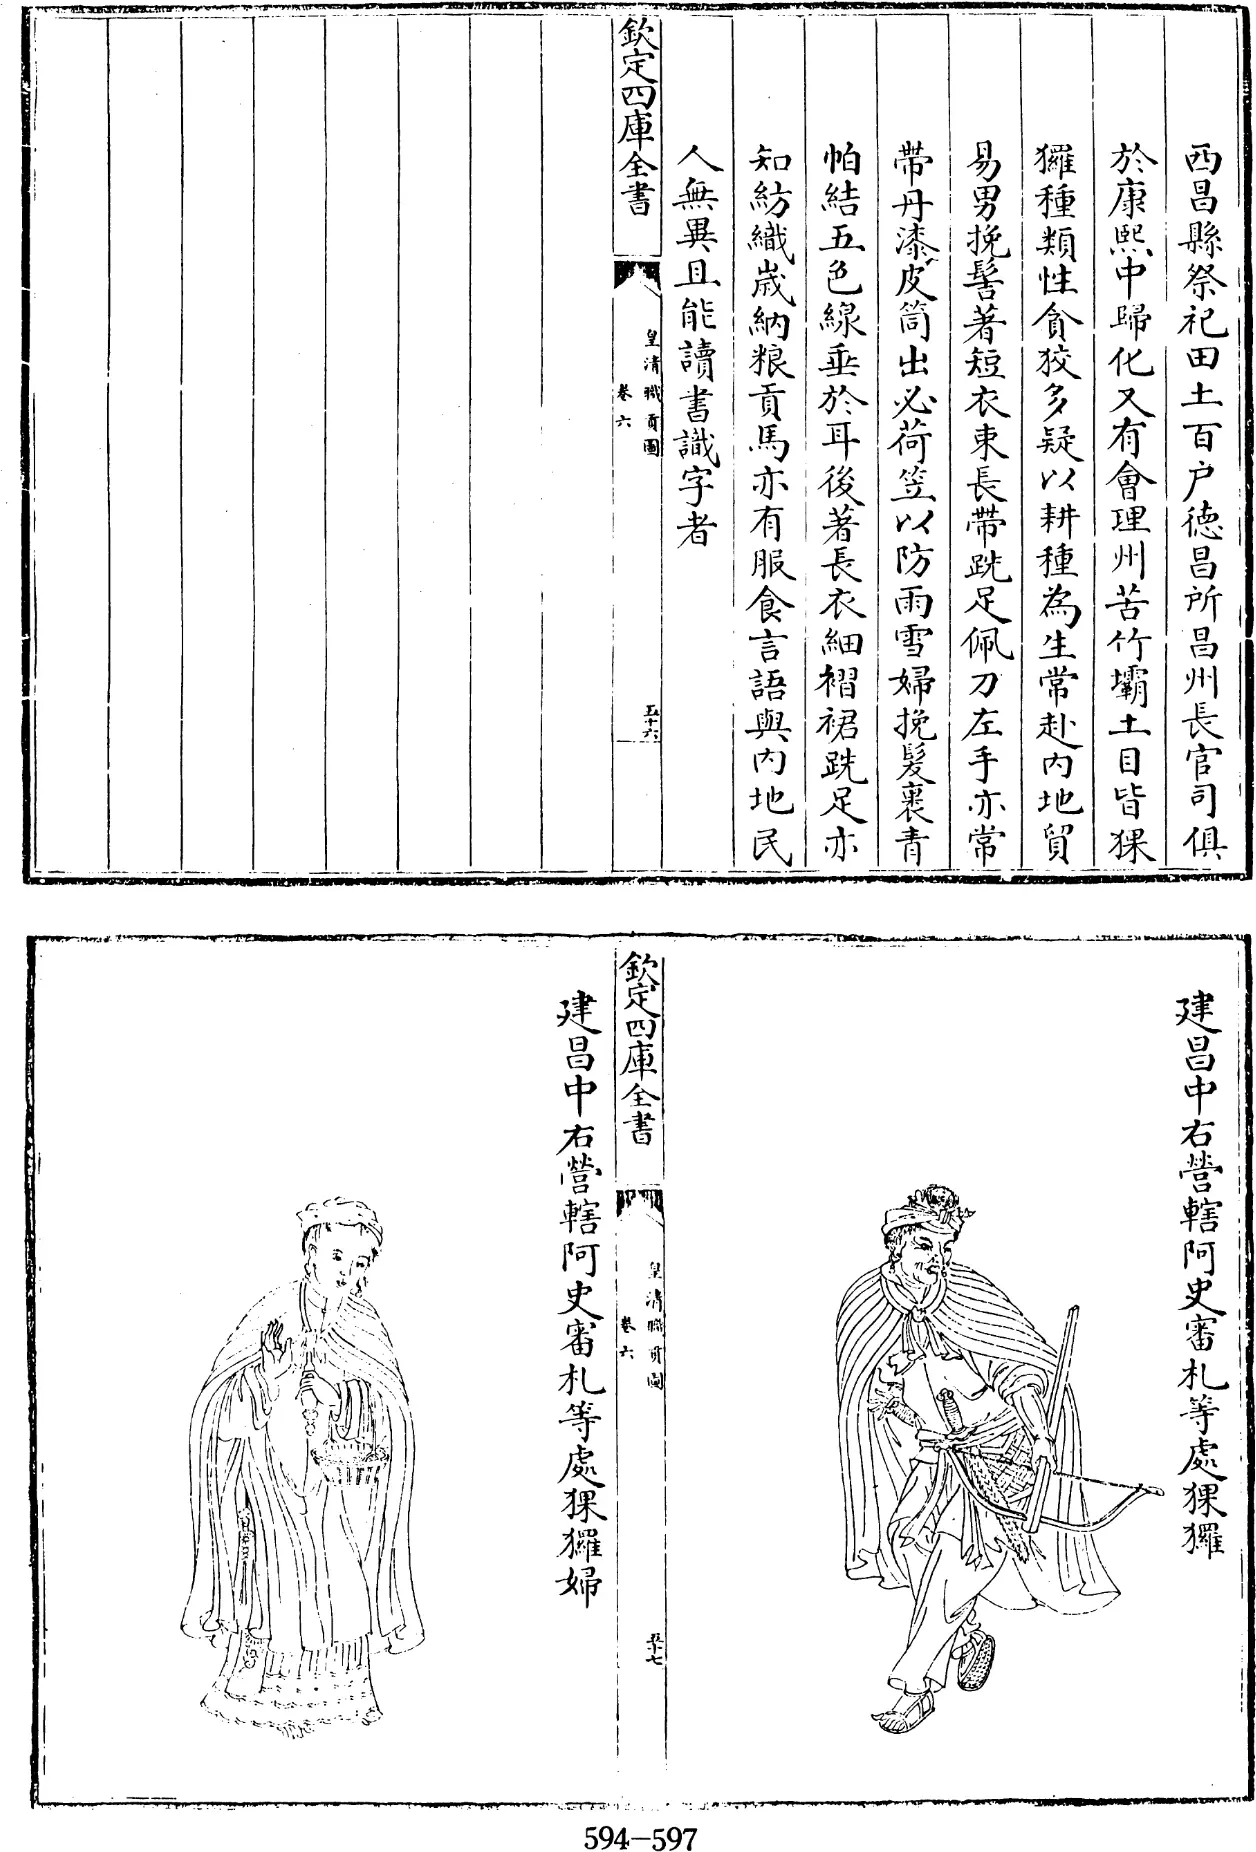 西昌縣祭祀田土百户徳昌所昌州長官司俱
於康熙中歸化又有㑹理州苦竹壩土目皆猓
玀種類性貪狡多疑以耕種為生常赴内地貿
易男挽髻著短衣束長帶跣足佩刀左手亦常
帶丹漆皮筒出必荷笠以防雨雪婦挽髮裹青
帕結五色線垂於耳後著長衣細褶裙跣足亦
知紡織歲納粮貢馬亦有服食言語與内地民
人無異且能讀書識字者
欽定四庫全書
皇清職貢圖
卷六
五十六
建昌中右營轄阿史審札等處猓玀
欽定四庫全書
皇清職貢圖
卷六
五十七
建昌中右營轄阿史審札等處猓玀婦
594-597